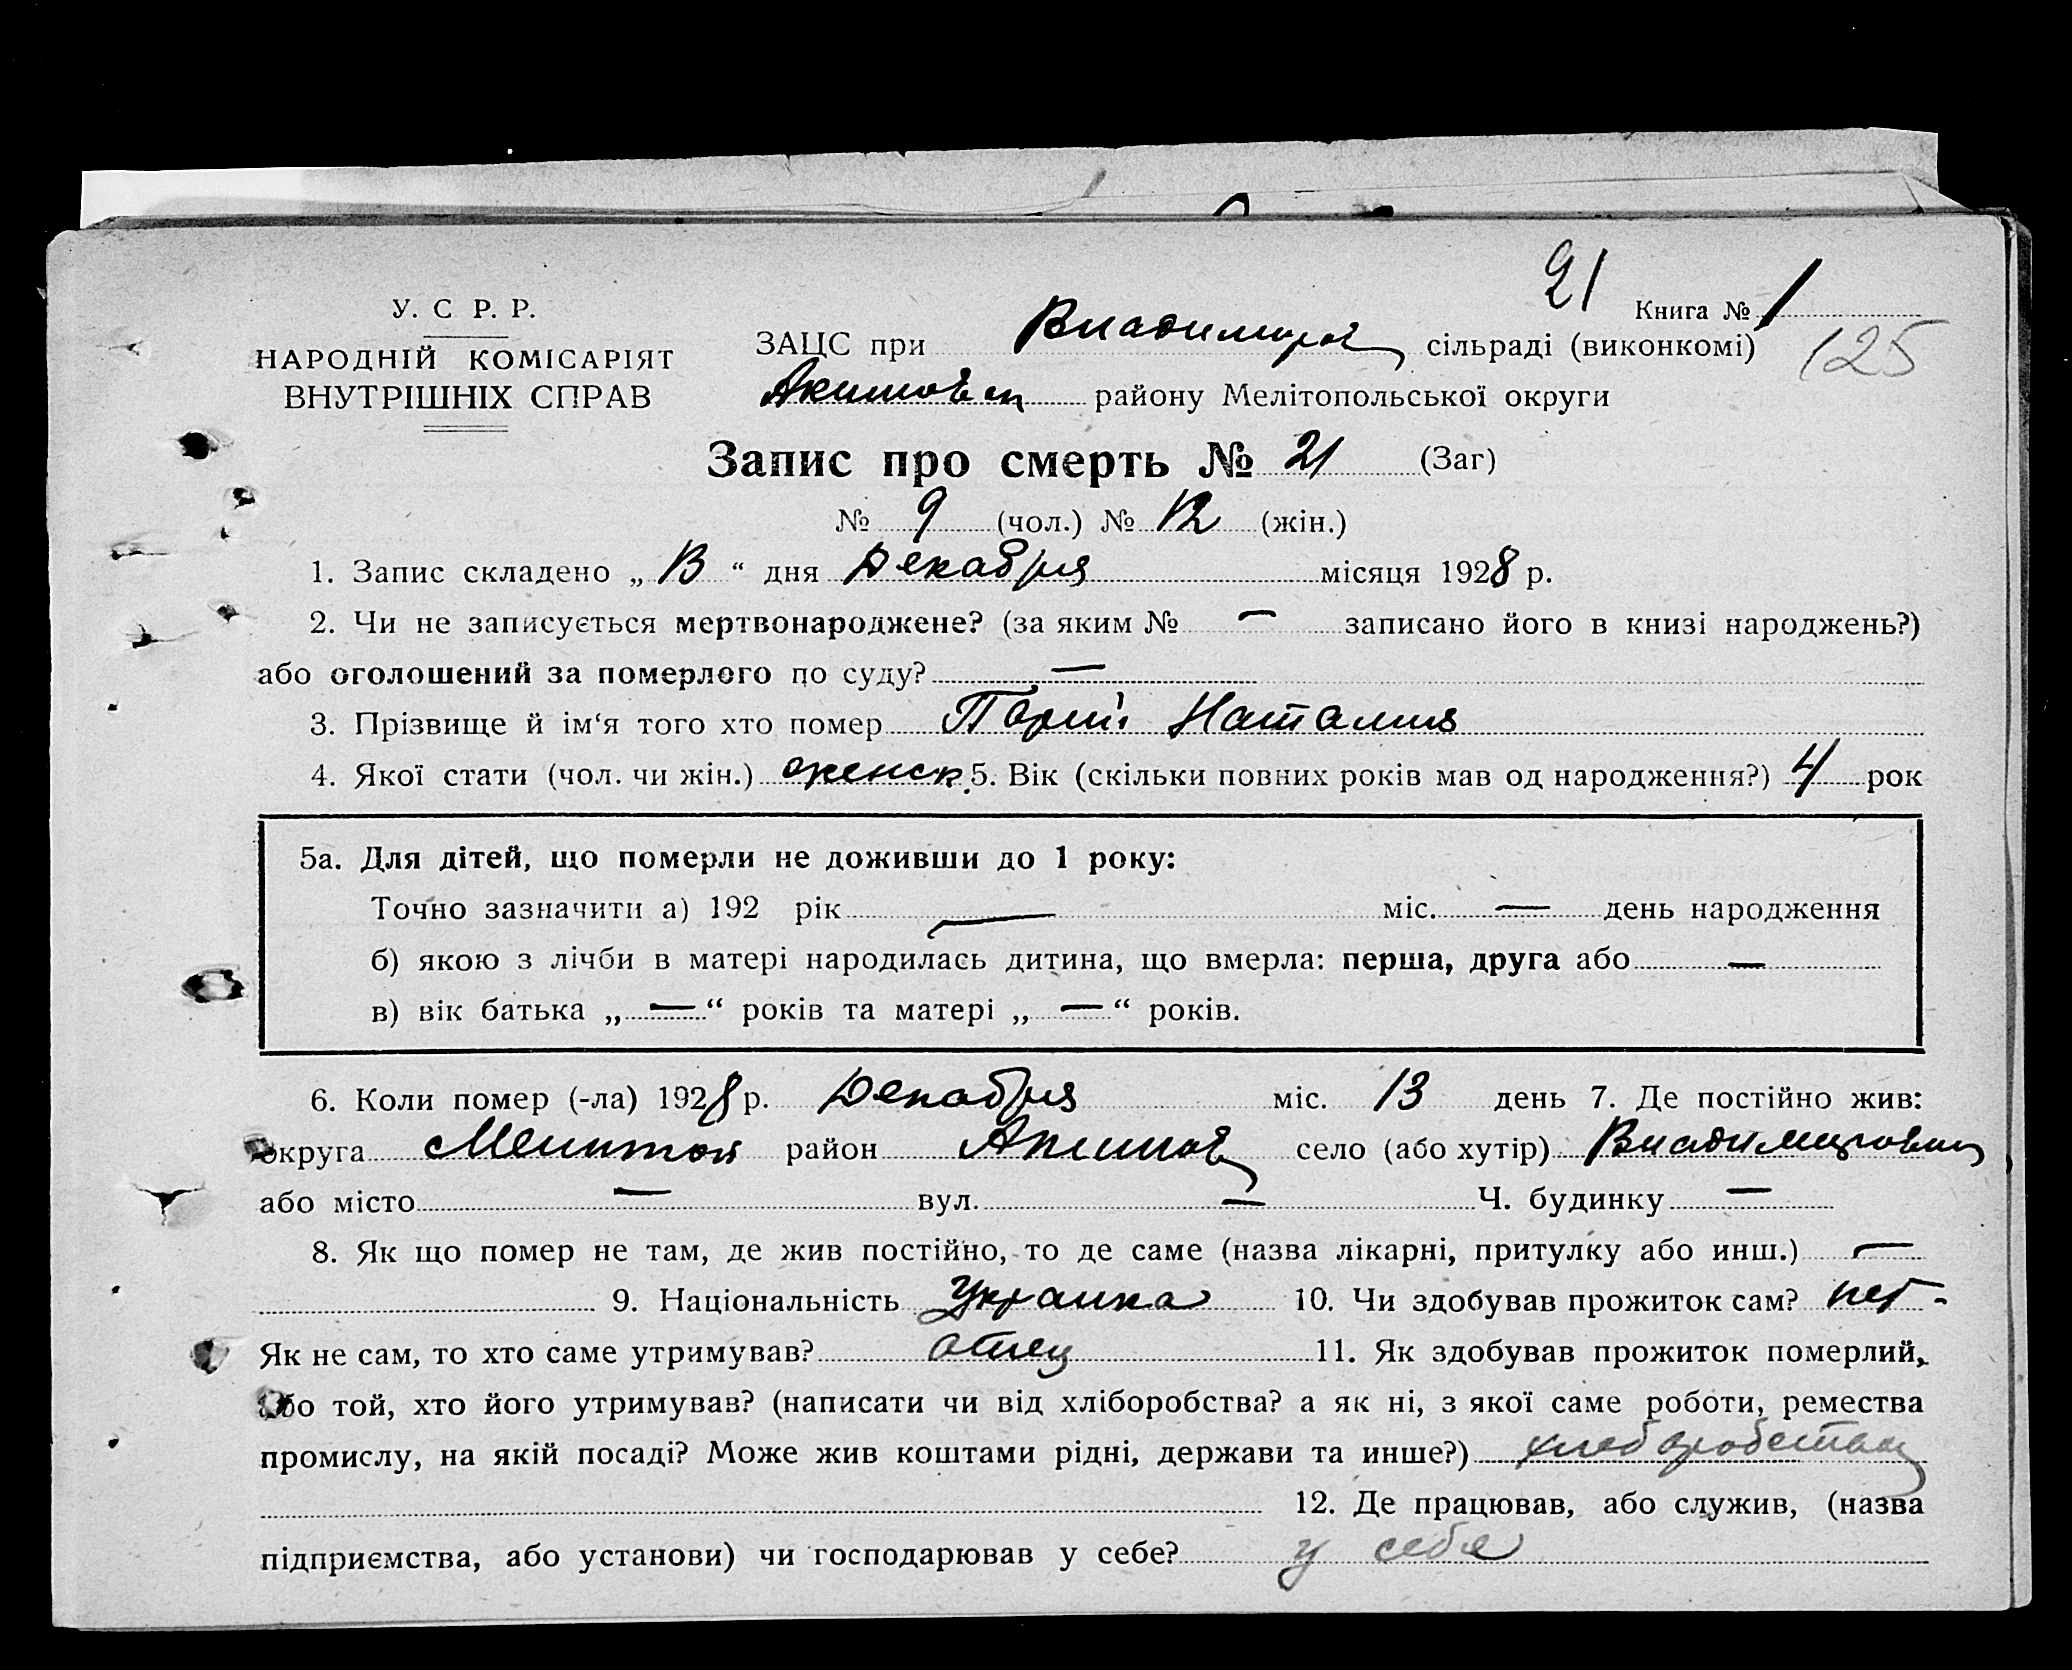 21
Книга № 1
У. С. Р. Р.
НАРОДНІЙ КОМІСАРІЯТ
ВНУТРІШНІХ СПРАВ
ЗАЦС при Владимиров сільраді (виконкомі) 125
Акимовск району Мелітопольської округи
Запис про смерть № 21 (Заг)
№ 9 (чол.) № 12 (жін.)
1. Запис складено „ 13 “ дня Декабря місяця 1928 р.
2. Чи не записується мертвонароджене? (за яким № — записано його в книзі народжень?)
або оголошений за померлого по суду? —
3. Прізвище й ім‘я того хто помер Наталия
4. Якої стати (чол. чи жін.) женск. 5. Вік (скільки повних років мав од народження?) 4 рок
5а. Для дітей, що померли не доживши до 1 року:
Точно зазначити а) 192 рік — міс. — день народження
б) якою з лічби в матері народилась дитина, що вмерла: перша, друга або —
в) вік батька „ — “ років та матері „ — “ років.
6. Коли помер (-ла) 1928 р. Декабря міс. 13 день 7. Де постійно жив:
округа Мелитоп район Акимов село (або хутір) Владимировка
або місто — вул. — Ч. будинку —
8. Як що помер не там, де жив постійно, то де саме (назва лікарні, притулку або инш.) —
9. Національність Украинка 10. Чи здобував прожиток сам? нет -
Як не сам, то хто саме утримував? отец 11. Як здобував прожиток померлий,
або той, хто його утримував? (написати чи від хліборобства? а як ні, з якої саме роботи, ремества
промислу, на якій посаді? Може жив коштами рідні, держави та инше?)
12. Де працював, або служив, (назва
підприємства, або установи) чи господарював у себе? у себе